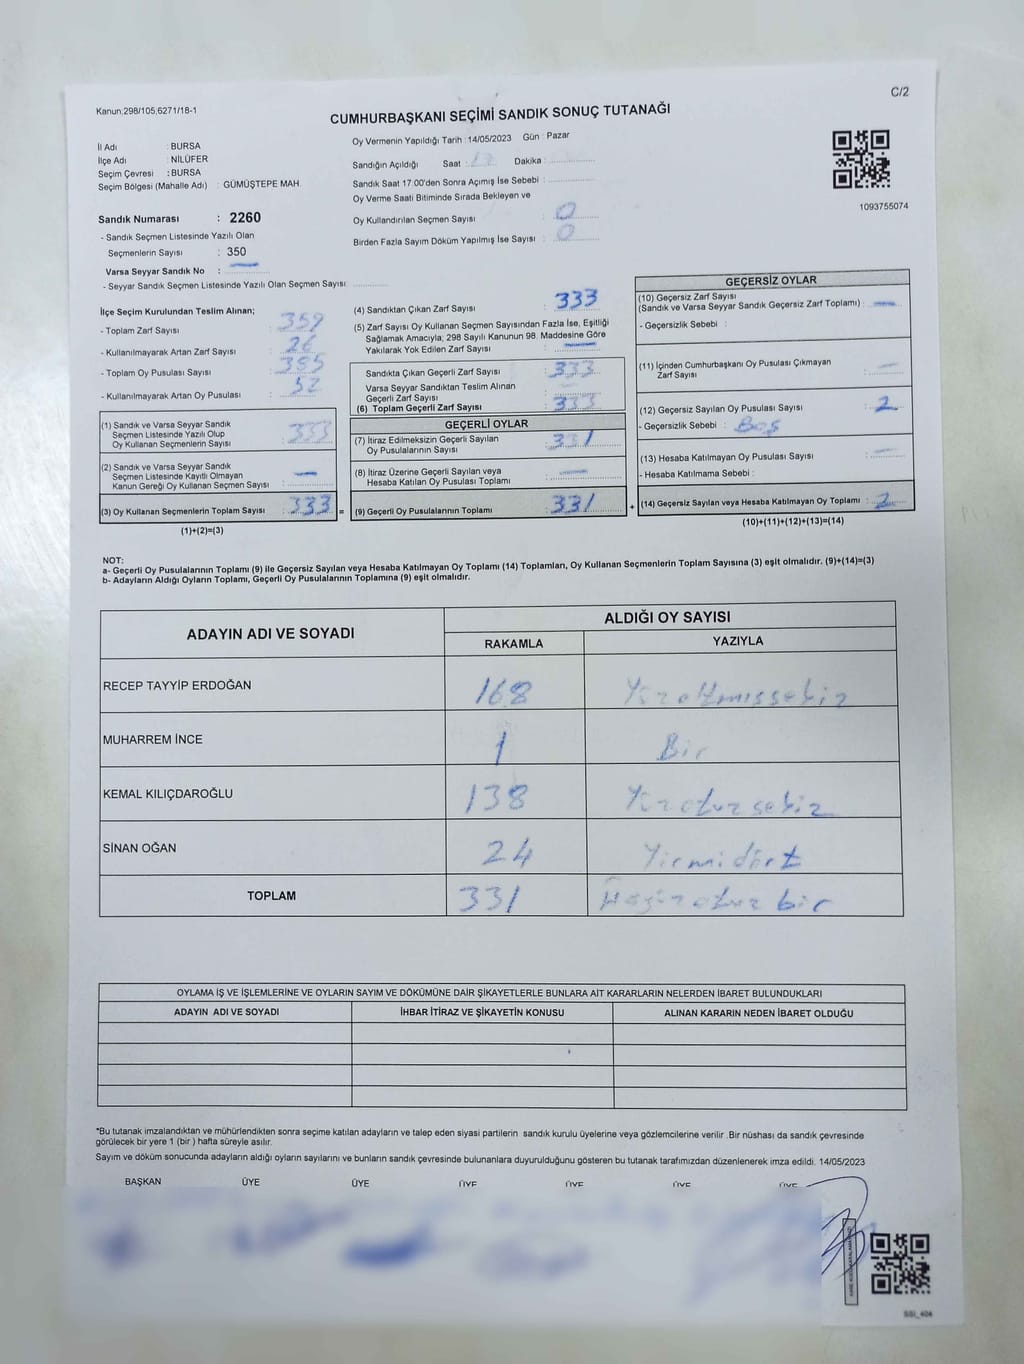 C/2
Kanun,298/105;6271/18-1
CUMHURBAŞKANI SEÇİMİ SANDIK SONUÇ TUTANAĞI
İl Adı : BURSA
İlçe Adı : NİLÜFER
Seçim Çevresi : BURSA
Seçim Bölgesi (Mahalle Adı) : GÜMÜŞTEPE MAH.
Sandık Numarası : 2260
- Sandık Seçmen Listesinde Yazılı Olan
Seçmenlerin Sayısı : 350
Varsa Seyyar Sandık No : —
- Seyyar Sandık Seçmen Listesinde Yazılı Olan Seçmen Sayısı:
Oy Vermenin Yapıldığı Tarih : 14/05/2023 Gün : Pazar
Sandığın Açıldığı Saat : 17 Dakika :
Sandık Saat 17:00'den Sonra Açımış İse Sebebi :
Oy Verme Saati Bitiminde Sırada Bekleyen ve
Oy Kullandırılan Seçmen Sayısı : 0
Birden Fazla Sayım Döküm Yapılmış İse Sayısı : 0
1093755074
İlçe Seçim Kurulundan Teslim Alınan;
- Toplam Zarf Sayısı : 359
- Kullanılmayarak Artan Zarf Sayısı : 26
- Toplam Oy Pusulası Sayısı : 385
- Kullanılmayarak Artan Oy Pusulası : 52
(1) Sandık ve Varsa Seyyar Sandık
Seçmen Listesinde Yazılı Olup
Oy Kullanan Seçmenlerin Sayısı : 333
(2) Sandık ve Varsa Seyyar Sandık
Seçmen Listesinde Kayıtlı Olmayan
Kanun Gereği Oy Kullanan Seçmen Sayısı : —
(3) Oy Kullanan Seçmenlerin Toplam Sayısı : 333 =
(1)+(2)=(3)
(4) Sandıktan Çıkan Zarf Sayısı : 333
(5) Zarf Sayısı Oy Kullanan Seçmen Sayısından Fazla İse, Eşitliği
Sağlamak Amacıyla; 298 Sayılı Kanunun 98. Maddesine Göre
Yakılarak Yok Edilen Zarf Sayısı : —
Sandıkta Çıkan Geçerli Zarf Sayısı : 333
Varsa Seyyar Sandıktan Teslim Alınan
Geçerli Zarf Sayısı : —
(6) Toplam Geçerli Zarf Sayısı : 333
GEÇERLİ OYLAR
(7) İtiraz Edilmeksizin Geçerli Sayılan
Oy Pusulalarının Sayısı : 331
(8) İtiraz Üzerine Geçerli Sayılan veya
Hesaba Katılan Oy Pusulası Toplamı : —
(9) Geçerli Oy Pusulalarının Toplamı : 331 +
GEÇERSİZ OYLAR
(10) Geçersiz Zarf Sayısı
(Sandık ve Varsa Seyyar Sandık Geçersiz Zarf Toplamı) : —
- Geçersizlik Sebebi :
(11) İçinden Cumhurbaşkanı Oy Pusulası Çıkmayan
Zarf Sayısı : —
(12) Geçersiz Sayılan Oy Pusulası Sayısı : 2
- Geçersizlik Sebebi : Boş
(13) Hesaba Katılmayan Oy Pusulası Sayısı : —
- Hesaba Katılmama Sebebi :
(14) Geçersiz Sayılan veya Hesaba Katılmayan Oy Toplamı : 2
(10)+(11)+(12)+(13)=(14)
NOT:
a- Geçerli Oy Pusulalarının Toplamı (9) ile Geçersiz Sayılan veya Hesaba Katılmayan Oy Toplamı (14) Toplamları, Oy Kullanan Seçmenlerin Toplam Sayısına (3) eşit olmalıdır. (9)+(14)=(3)
b- Adayların Aldığı Oyların Toplamı, Geçerli Oy Pusulalarının Toplamına (9) eşit olmalıdır.
ADAYIN ADI VE SOYADI
ALDIĞI OY SAYISI
RAKAMLA YAZIYLA
RECEP TAYYİP ERDOĞAN 168 Yüzaltmışsekiz
MUHARREM İNCE 1 Bir
KEMAL KILIÇDAROĞLU 138 Yüzotuzsekiz
SİNAN OĞAN 24 Yirmidört
TOPLAM 331 Üçyüzotuz bir
OYLAMA İŞ VE İŞLEMLERİNE VE OYLARIN SAYIM VE DÖKÜMÜNE DAİR ŞİKAYETLERLE BUNLARA AİT KARARLARIN NELERDEN İBARET BULUNDUKLARI
ADAYIN ADI VE SOYADI İHBAR İTİRAZ VE ŞİKAYETİN KONUSU ALINAN KARARIN NEDEN İBARET OLDUĞU
*Bu tutanak imzalandıktan ve mühürlendikten sonra seçime katılan adayların ve talep eden siyasi partilerin sandık kurulu üyelerine veya gözlemcilerine verilir .Bir nüshası da sandık çevresinde
görülecek bir yere 1 (bir ) hafta süreyle asılır.
Sayım ve döküm sonucunda adayların aldığı oyların sayılarını ve bunların sandık çevresinde bulunanlara duyurulduğunu gösteren bu tutanak tarafımızdan düzenlenerek imza edildi. 14/05/2023
BAŞKAN ÜYE ÜYE ÜYE ÜYE ÜYE ÜYE
SSI_404